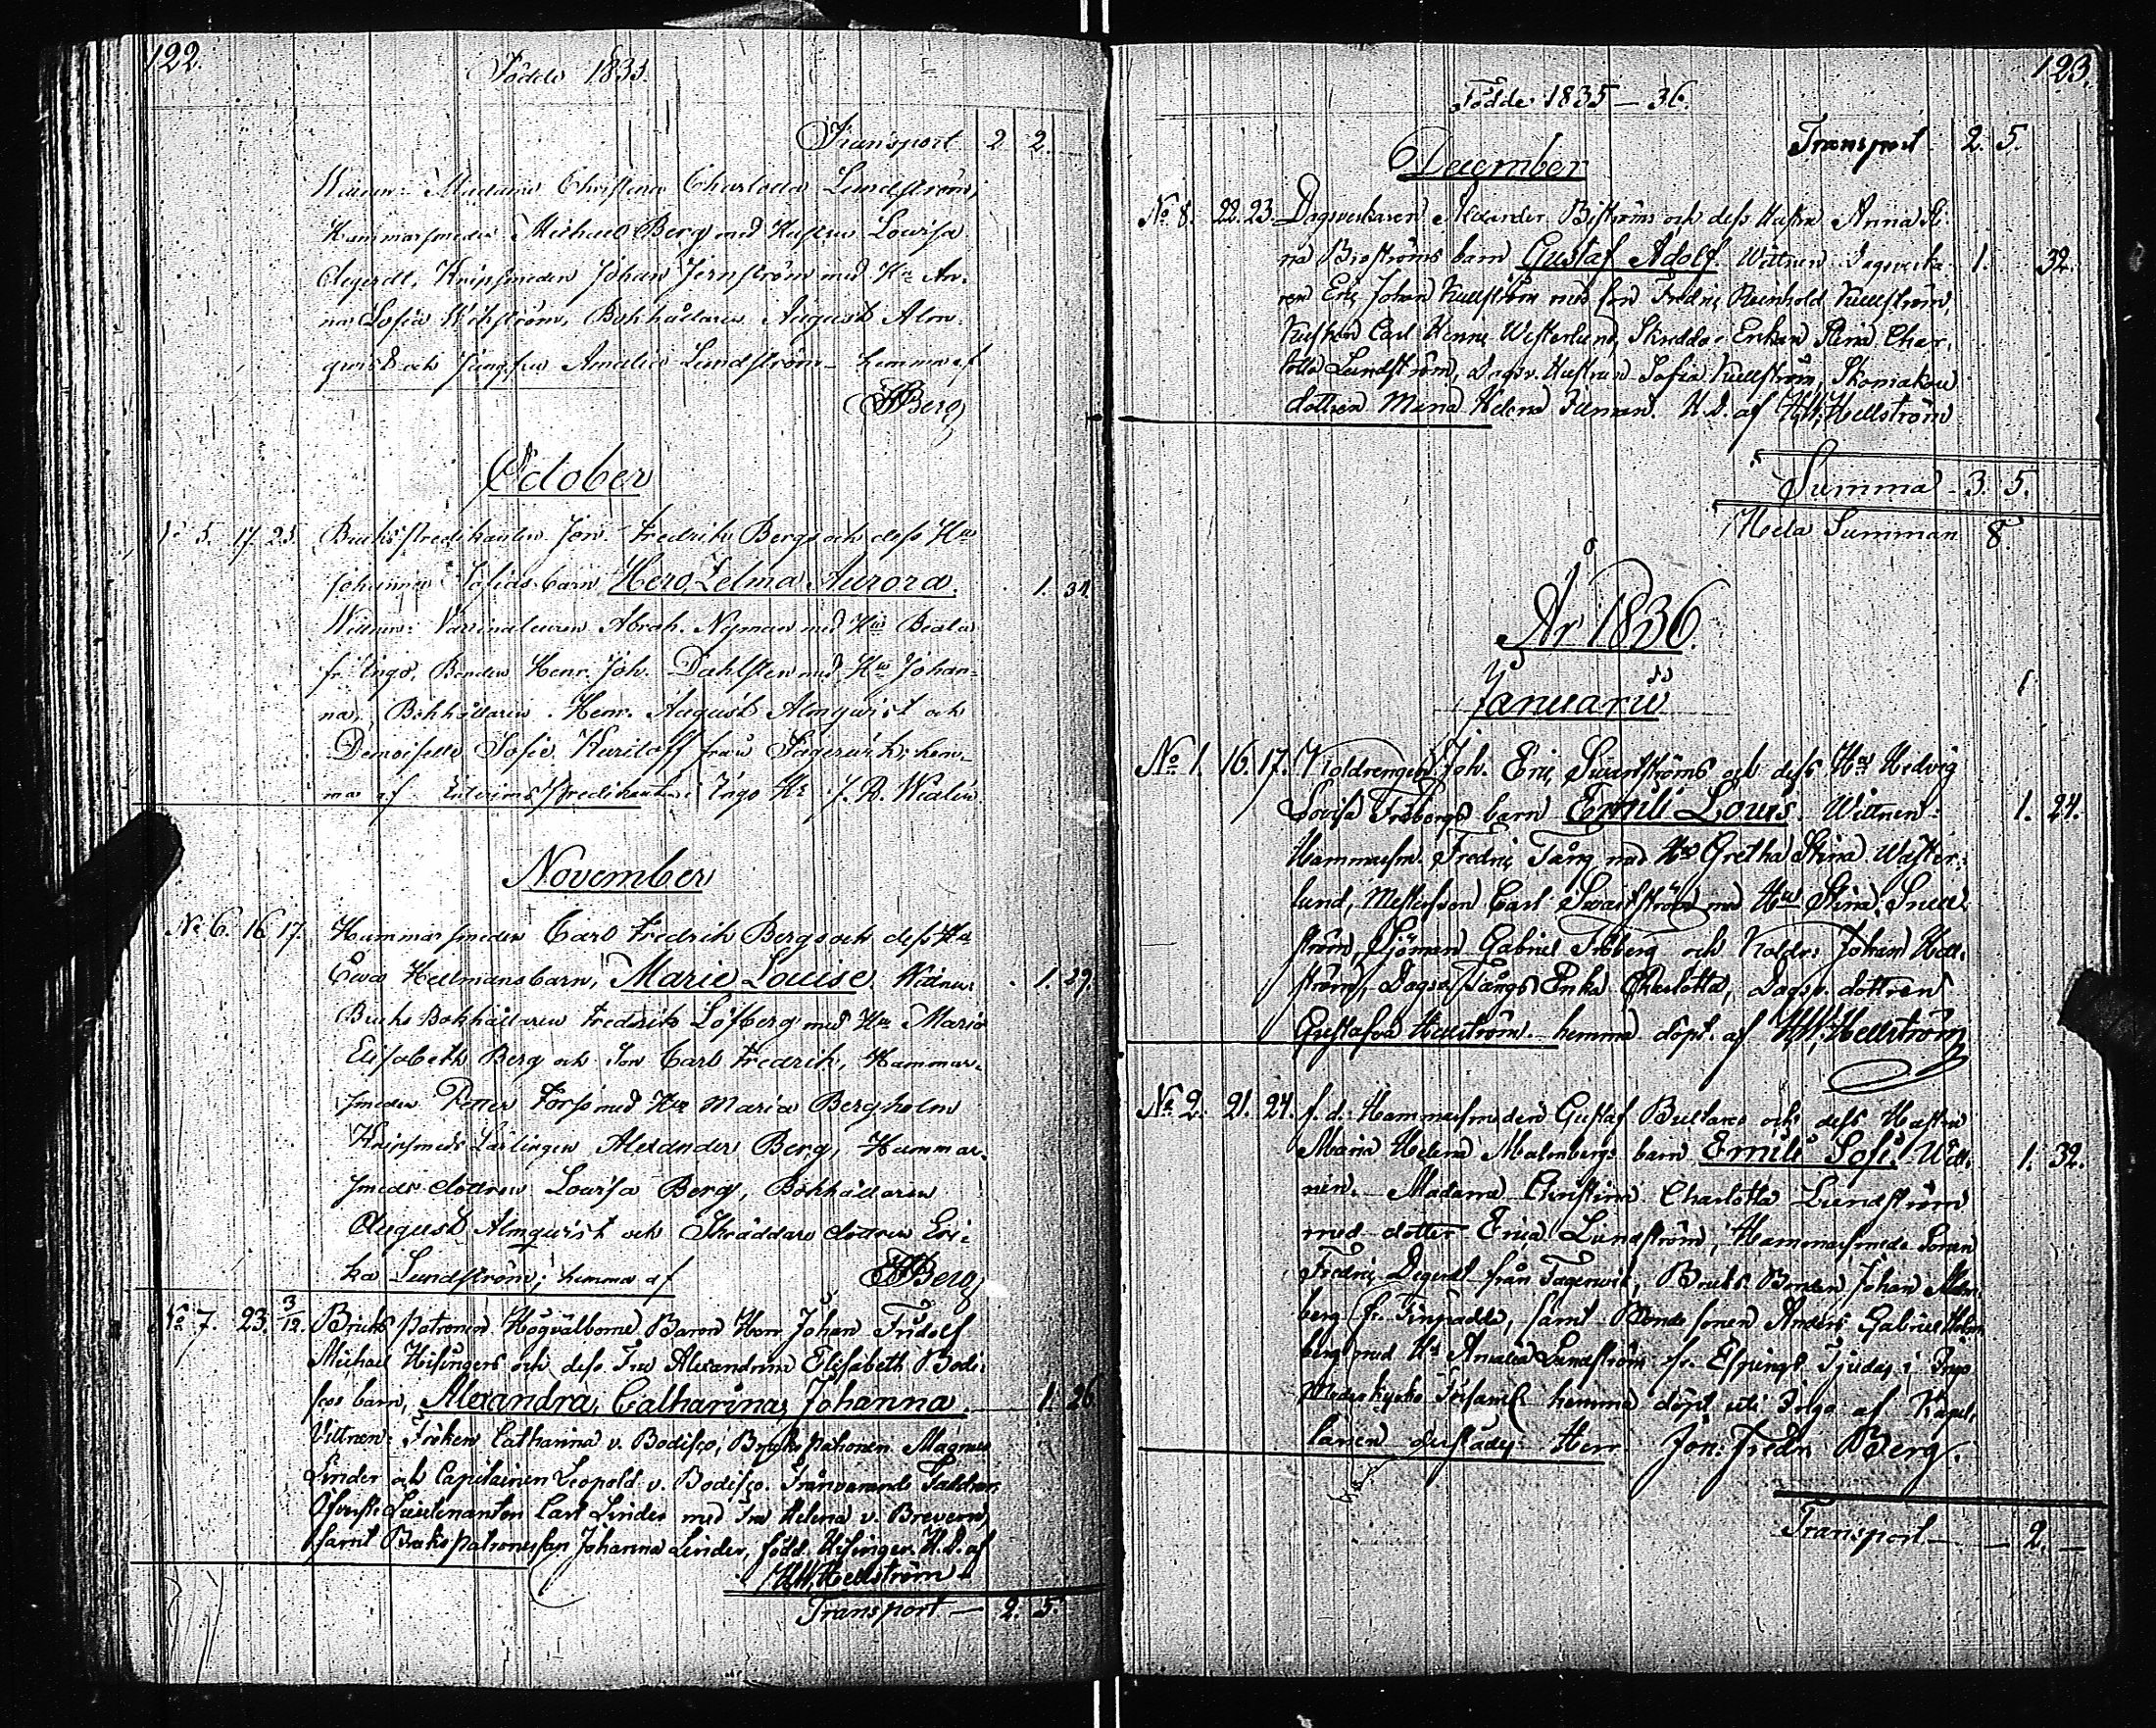 122.
Födde 1835.
Transport 2. 2.
Wittnen: Madame Christina Charlotta Lundström,
Hammarsmeden Michael Berg med Hustru Lovisa
Degerdt, Knipsmeden Johan Jernström med Hu An-
na Sofia Wikström, Bokhållaren August Alm-
quist och Jungfru Amalia Lundström hemma af
Berg
October
No 5. 17. 25. Bruks predikanten Jon. Fredrik Bergs och dess Hu
Johanna Sofias barn Hero Zelma Aurora. 1. 34.
Wittnen: Abrah. Nyman med Hu Beata
fr. Ingo, Bonden Henr. Joh. Dahlsten med Hu Johan-
na, Bokhållaren Henr. August Almqvist och
Demoiselle Sofie från Fagervik; hem-
ma af predikanten i Ingo Hr J. R. Welin
November
No 6. 16. 17. Hammarsmeden Carl Fredrik Bergs och dess Hu
Ewa Hellmans barn, Marie Louise. Wittnen: 1. 29.
Bruks Bokhållaren Fredrik Löfberg med Hu Maria
Elisabeth Berg och Son Carl Fredrik, Hammar-
smeden Petter Forss med Hu Maria Bergholm
Knipsmeds Lärlingen Alexander Berg, Hammar-
smeds dottren Lovisa Berg, Bokhållaren
August Almqvist och Skräddare dottren Eri-
ka Lundström; hemma af Berg
No 7. 23. 3/12. Bruks patronen Högvälborne Baron Herr Johan Fridolf
Michael Hisingers och dess Fru Alexandrine Elisabeth Bodi-
scos barn, Alexandra, Catharina, Johanna. 1. 26.
Vittnen: Fröken Catharina v. Bodisco, Brukspatronen Magnus
Linder och Capitainen Leopold v. Bodisco. Frånvarande Faddrar:
Öfverste Lieutenanten Carl Linder med Fru Helena v. Brevern,
samt Brukspatronessan Johanna Linder, född Hisinger. H. D. af
Hellström
Transport — 2. 5.
123.
Födde 1835 — 36.
Transport 2. 5.
December
No 8. 22. 23. Dagsverkaren Alexander Biströms och dess Hustru Anna Sti-
na Biströms barn Gustaf Adolf. Wittnen Dagsverka- 1. 32.
ren Eric Johan Kullström med son Fredric Reinhold Kullström,
Kusken Carl Henric Westerlund, Skreddar Enkan Stina Char-
lotta Lundström, Dagsv. Hustrun Sofia Kullström, Skomakare
dottren Maria Helena. H. D. af Hellström
Summa 3. 5.
Hela Summan 8.
År 1836.
Januarii
No 1. 16. 17. Koldrengen Joh. Eric Swartströms och dess Hu Hedvig
Lovisa Fribergs barn Emili Lovis. Wittnen: 1. 24.
Hammarsm. Fredric Tång med Hu Gretha Stina Wester-
lund, Carl Swartström med Hu Stina
ström, Sjöman Gabriel Friberg och Koldr: Johan Hell-
ström, Dagsv. Tångs Enka Charlotta, Dagsv. dottren
Gustafva Hellström hemma döpt af Hellström
No 2. 21. 24. f. d. Hammarsmeden Gustaf och dess Hustru
Maria Helena Malmbergs barn Emili Sofi. Witt- 1. 32.
nen. Madame Christina Charlotta Lundström
med dotter Erica Lundström, Hammarsmeds Sonen
Fredric Degerdt från Fagervik, Bruks Bonden Johan Malm-
berg fr. samt Bonde sonen Anders Gabriel Holm-
berg med Hu Amalia Lundström fr. i Ingo
hemma döpt uti Ingo af Kapel-
lanen Herr Jon. Fredr. Berg.
Transport — 2. —